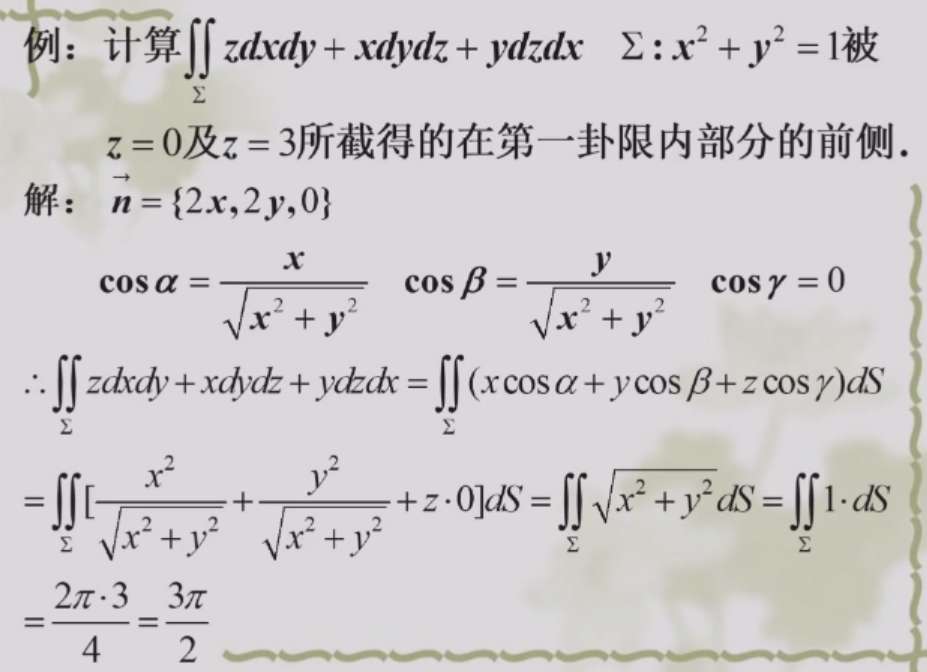 例：计算∬_Σ zdxdy + xdydz + ydzdx Σ : x² + y² = 1被
z = 0及z = 3所截得的在第一卦限内部分的前侧.
解： n⃗ = {2x,2y,0}
cos α = x/√(x² + y²) cos β = y/√(x² + y²) cos γ = 0
∴ ∬_Σ zdxdy + xdydz + ydzdx = ∬_Σ (x cos α + y cos β + z cos γ)dS
= ∬_Σ [x²/√(x² + y²) + y²/√(x² + y²) + z·0]dS = ∬_Σ √(x² + y²) dS = ∬_Σ 1·dS
= 2π·3/4 = 3π/2